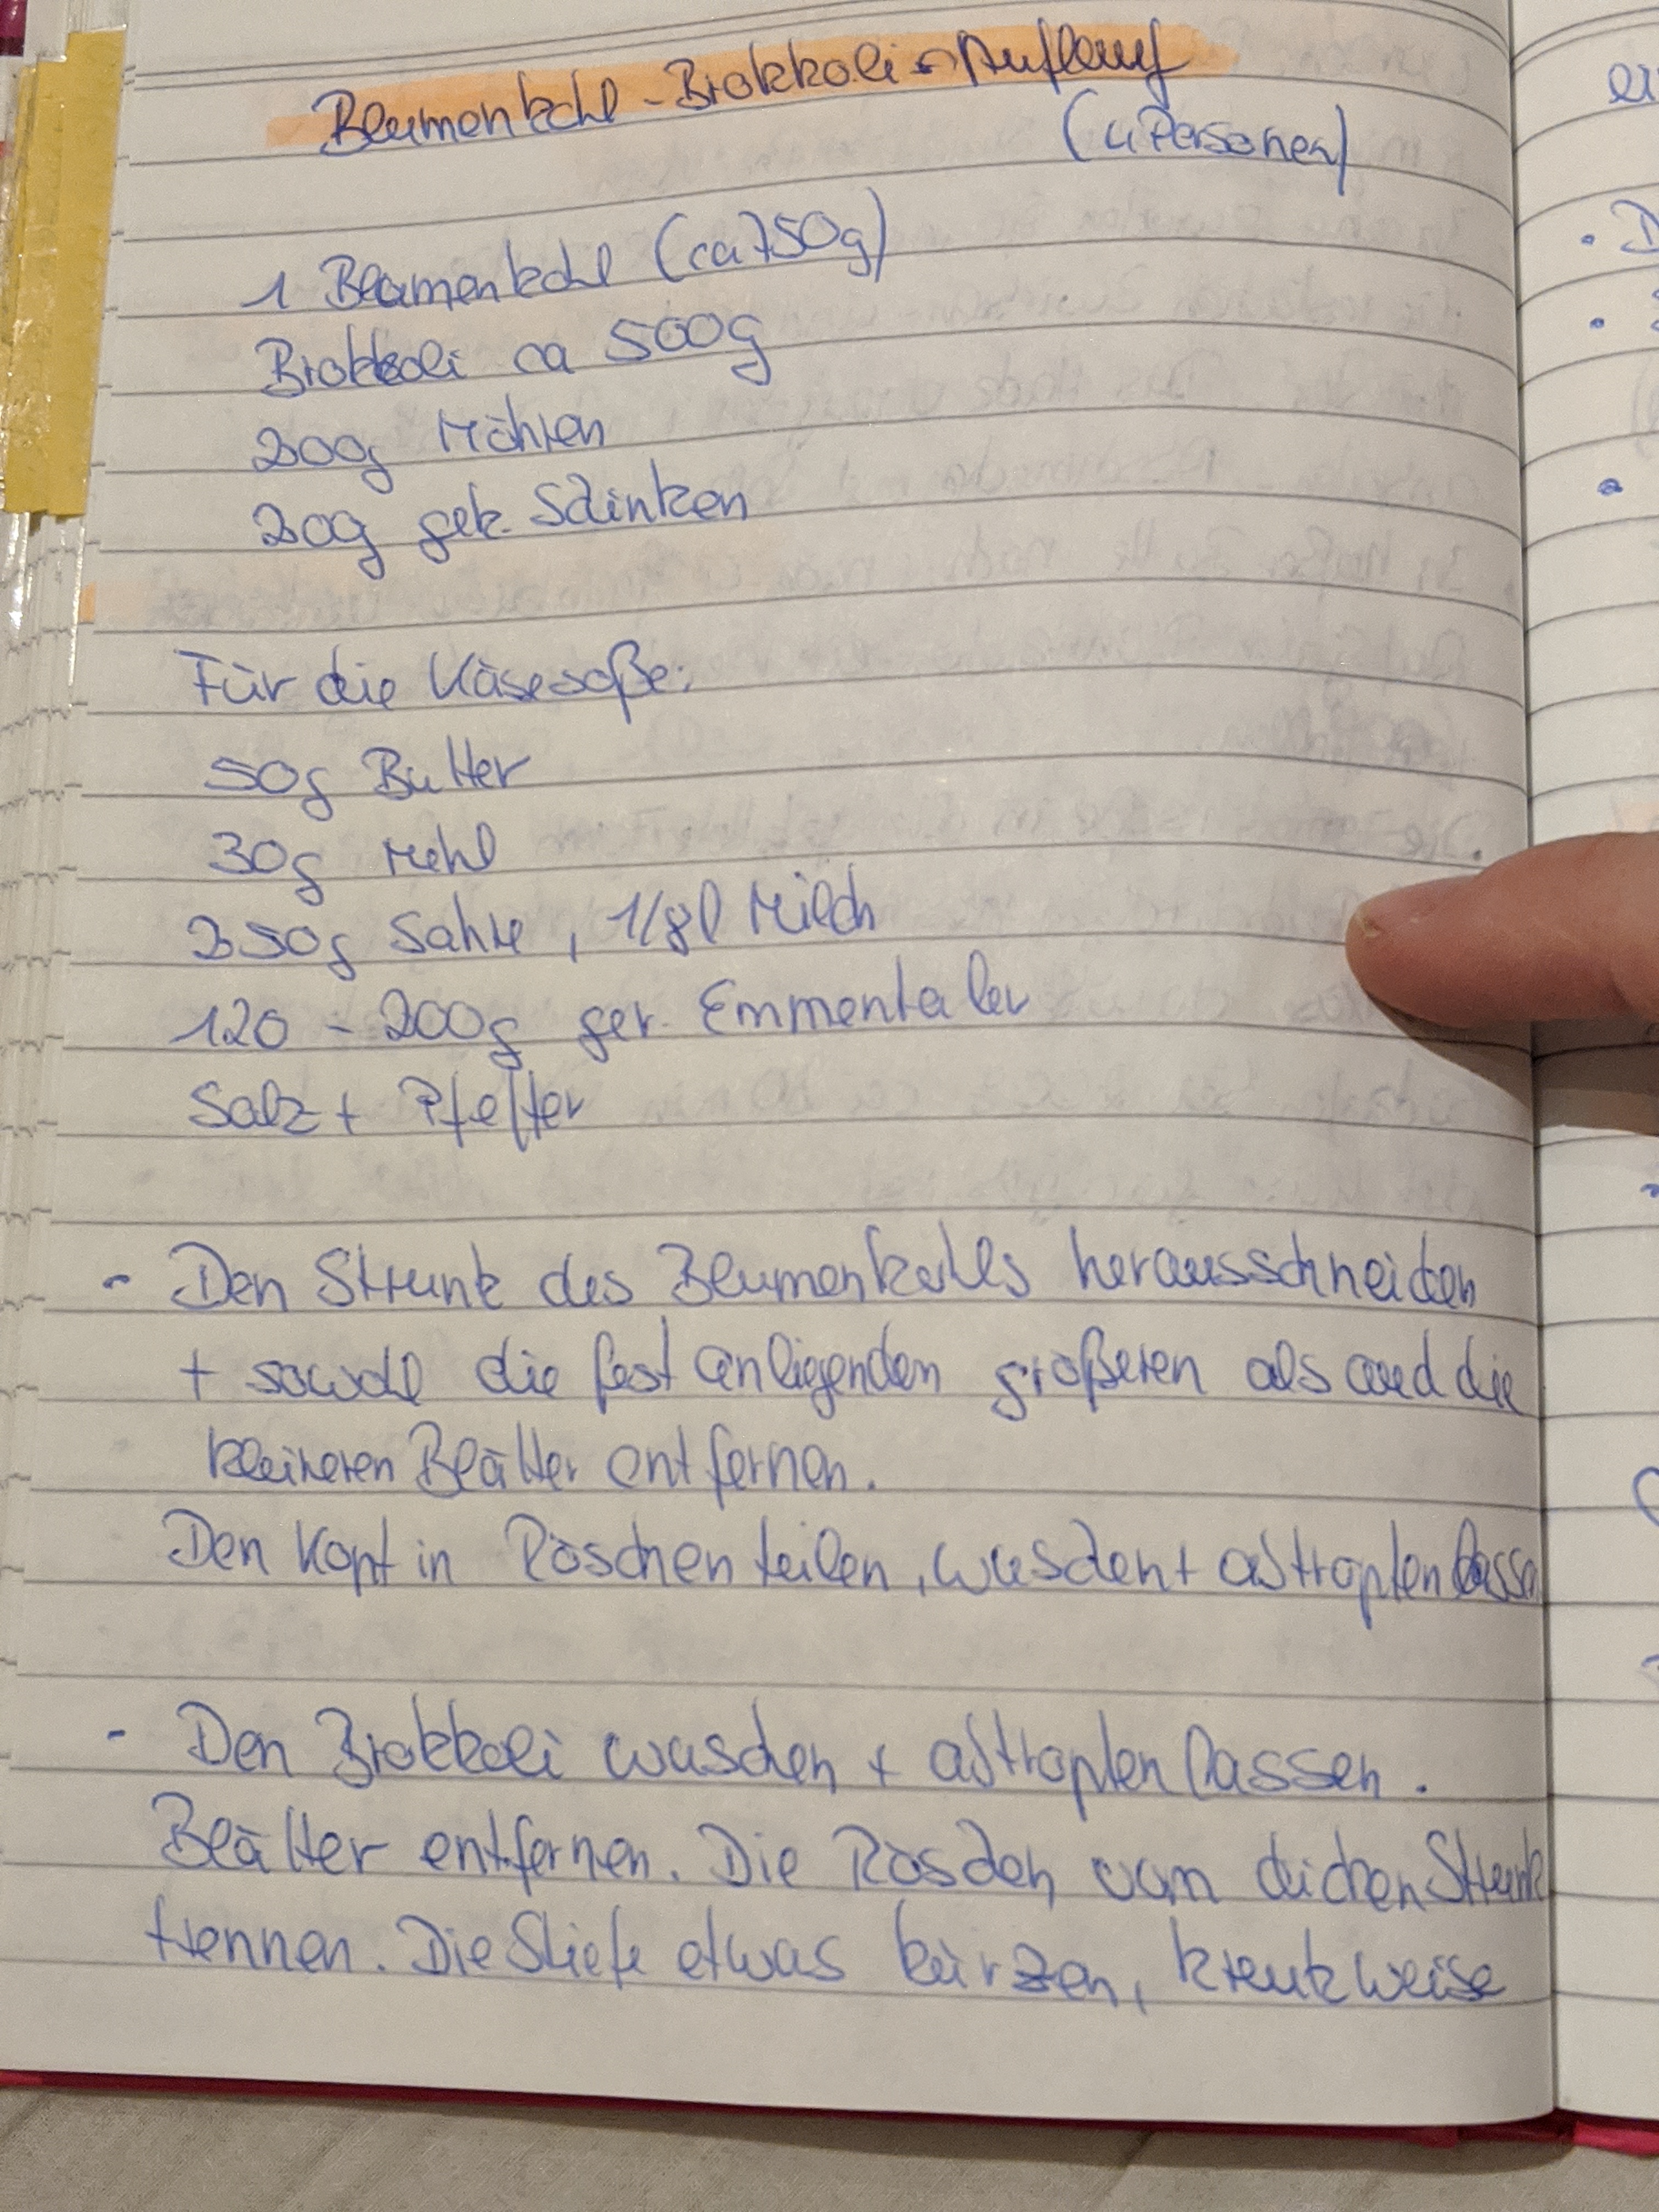 Blumenkohl-Brokkoli-Auflauf
(4 Personen)
1 Blumenkohl (ca 750g)
Brokkoli ca 500g
200g Möhren
200g gek. Schinken
Für die Käsesoße:
50g Butter
30g Mehl
250g Sahne, 1/8l Milch
120 - 200g ger. Emmentaler
Salz + Pfeffer
- Den Strunk des Blumenkohls herausschneiden
+ sowohl die fest anliegenden größeren als auch die
kleineren Blätter entfernen.
Den Kopf in Röschen teilen, waschen + abtropfen lassen
- Den Brokkoli waschen + abtropfen lassen.
Blätter entfernen. Die Röschen vom dicken Strunk
trennen. Die Stiele etwas kürzen, kreuzweise